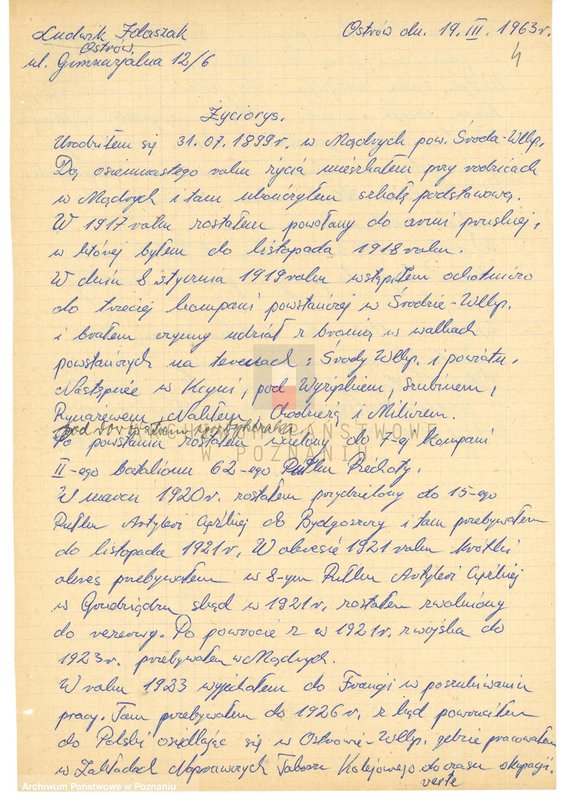 Ludwik
Ostrów
ul. Gimnazjalna 12/6
Ostrów dn. 19. III. 1963r.
4
Życiorys.
Urodziłem się 31.07.1899r. w Mądrych pow. Środa-Wlkp.
Do osiemnastego roku życia mieszkałem przy rodzicach
w Mądrych i tam ukończyłem szkołę podstawową.
W 1917 roku zostałem powołany do armi pruskiej,
w której byłem do listopada 1918 roku.
W dniu 8 stycznia 1919 roku wstąpiłem ochotniczo
do trzeciej kompani powstańczej w Środzie-Wlkp.
i brałem czynny udział z bronią w walkach
powstańczych na terenach: Środy Wlkp. i powiatu.
Następnie w Kcyni, pod Wyrzyskiem, Szubinem,
Rynarzewem, Nakłem, Chodzieżą i
pod
ARCHIWUM PAŃSTWOWE
W POZNANIU
Po powstaniu zostałem wcielony do 7-ej kompani
II-ego batalionu 62-ego Pułku Piechoty.
W marcu 1920r. zostałem przydzielony do 15-ego
Pułku Artyleri Ciężkiej do Bydgoszczy i tam przebywałem
do listopada 1921r. W okresie 1921 roku krótki
okres przebywałem w 8-ym Pułku Artyleri Ciężkiej
w Grudziądzu skąd w 1921r. zostałem zwolniony
do rezerwy. Po powrocie z w 1921r. z wojska do
1923r. przebywałem w Mądrych.
W roku 1923 wyjechałem do Francji w poszukiwaniu
pracy. Tam przebywałem do 1926r. z kąd powróciłem
do Polski osiedlając się w Ostrowie-Wlkp. gdzie pracowałem
w Zakładach Naprawczych Taboru Kolejowego do czasu okupacji.
verte
Archiwum Państwowe w Poznaniu